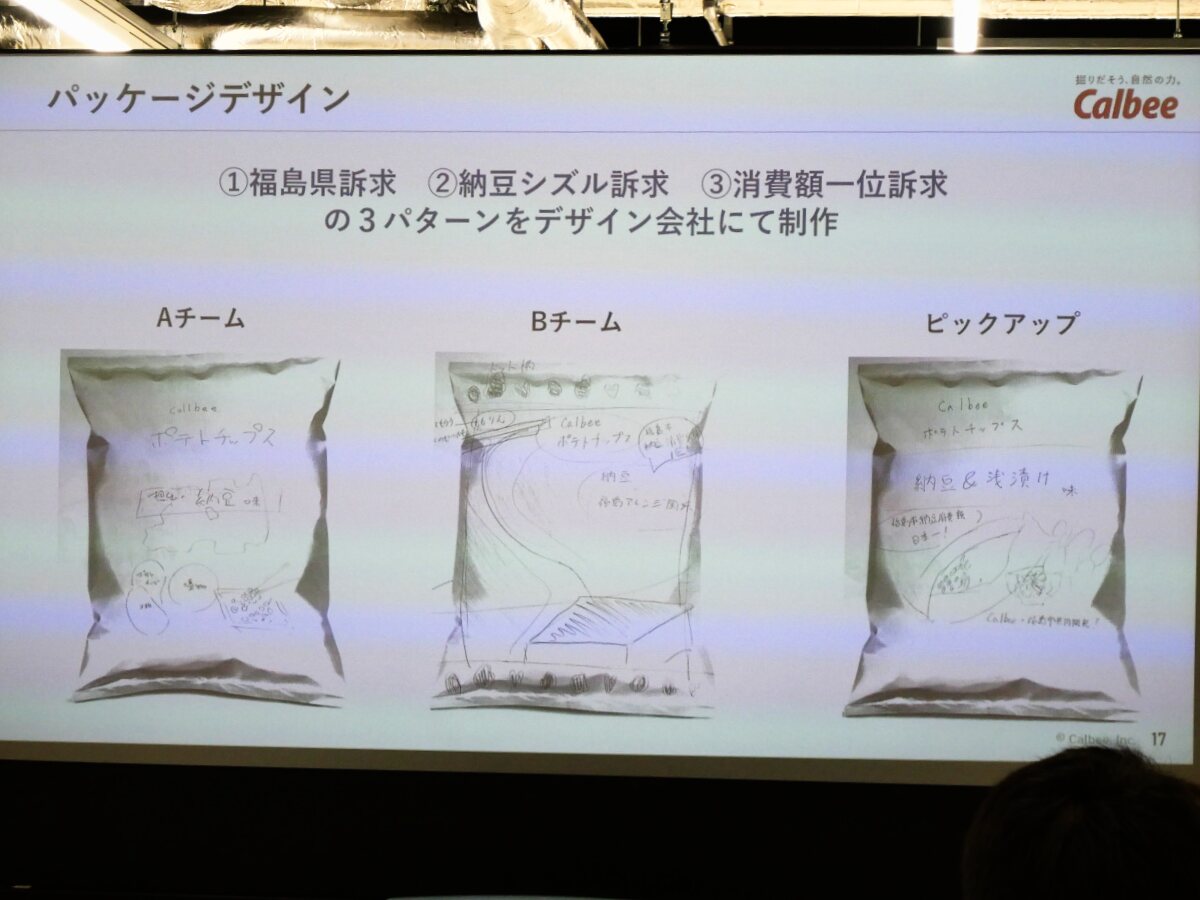 パッケージデザイン
掘りだそう、自然の力。
Calbee
①福島県訴求 ②納豆シズル訴求 ③消費額一位訴求
の３パターンをデザイン会社にて制作
Aチーム
Bチーム
ピックアップ
Callbee
ポテトチップス
納豆 味
ドット柄
Calbee
ポテトチップス
納豆
Calbee
ポテトチップス
納豆&浅漬け
味
日本一!
© Calbee, Inc.
17